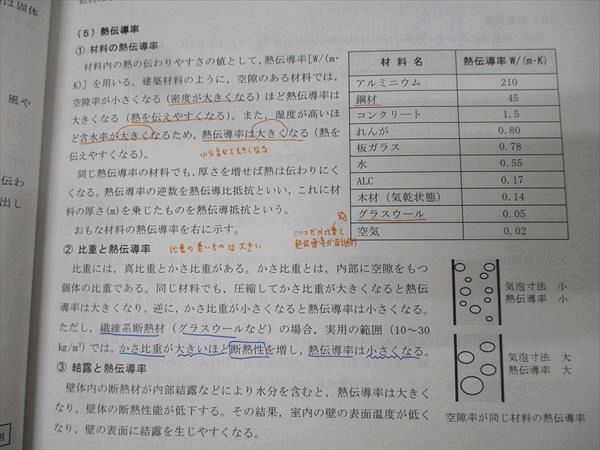 （5）熱伝導率
① 材料の熱伝導率
材料内の熱の伝わりやすさの値として，熱伝導率[W/(m・
K)］を用いる。建築材料のように，空隙のある材料では，
空隙率が小さくなる（密度が大きくなる）ほど熱伝導率は
大きくなる（熱を伝えやすくなる）。また，湿度が高いほ
ど含水率が大きくなるため，熱伝導率は大きくなる（熱を
伝えやすくなる）。
水分含むと大きくなる
同じ熱伝導率の材料でも，厚さを増せば熱は伝わりにく
くなる。熱伝導率の逆数を熱伝導比抵抗といい，これに材
料の厚さ(m)を乗じたものを熱伝導抵抗という。
おもな材料の熱伝導率を右に示す。
材料名 熱伝導率 W/(m・K)
アルミニウム 210
鋼材 45
コンクリート 1.5
れんが 0.80
板ガラス 0.78
水 0.55
ALC 0.17
木材（気乾状態） 0.14
グラスウール 0.05
空気 0.02
② 比重と熱伝導率
比重の重いものは大きい
比重には，真比重とかさ比重がある。かさ比重とは，内部に空隙をもつ
個体の比重である。同じ材料でも，圧縮してかさ比重が大きくなると熱伝
導率は大きくなり，逆に，かさ比重が小さくなると熱伝導率は小さくなる。
ただし，繊維系断熱材（グラスウールなど）の場合，実用の範囲（10～30
kg/m³）では，かさ比重が大きいほど断熱性を増し，熱伝導率は小さくなる。
気泡寸法 小
熱伝導率 小
気泡寸法 大
熱伝導率 大
空隙率が同じ材料の熱伝導率
③ 結露と熱伝導率
壁体内の断熱材が内部結露などにより水分を含むと，熱伝導率は大きく
なり，壁体の断熱性能が低下する。その結果，室内の壁の表面温度が低く
なり，壁の表面に結露を生じやすくなる。
は固体
風や
伝わ
出し